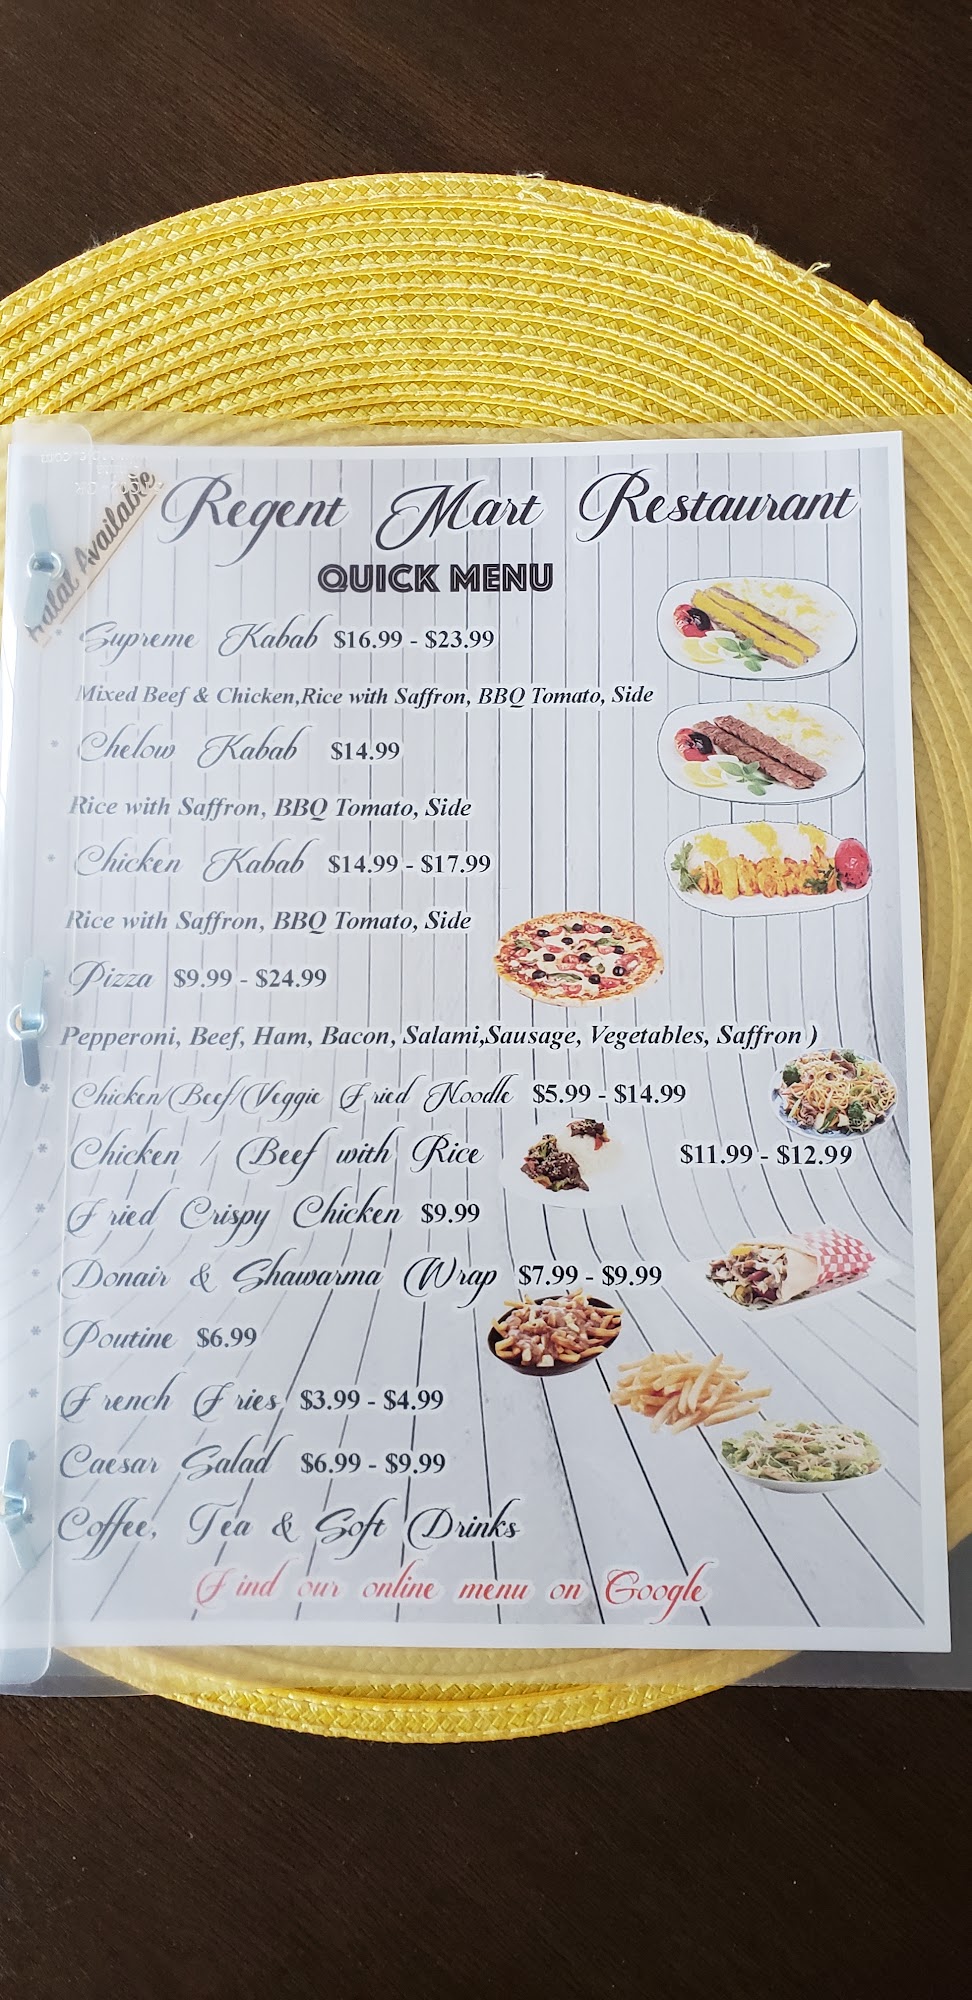 Halal Available
Regent Mart Restaurant
QUICK MENU
* Supreme Kabab $16.99 - $23.99
Mixed Beef & Chicken,Rice with Saffron, BBQ Tomato, Side
* Chelow Kabab $14.99
Rice with Saffron, BBQ Tomato, Side
* Chicken Kabab $14.99 - $17.99
Rice with Saffron, BBQ Tomato, Side
* Pizza $9.99 - $24.99
Pepperoni, Beef, Ham, Bacon, Salami,Sausage, Vegetables, Saffron )
* Chicken/Beef/Veggie Fried Noodle $5.99 - $14.99
* Chicken / Beef with Rice $11.99 - $12.99
* Fried Crispy Chicken $9.99
* Donair & Shawarma Wrap $7.99 - $9.99
* Poutine $6.99
* French Fries $3.99 - $4.99
* Caesar Salad $6.99 - $9.99
* Coffee, Tea & Soft Drinks
Find our online menu on Google